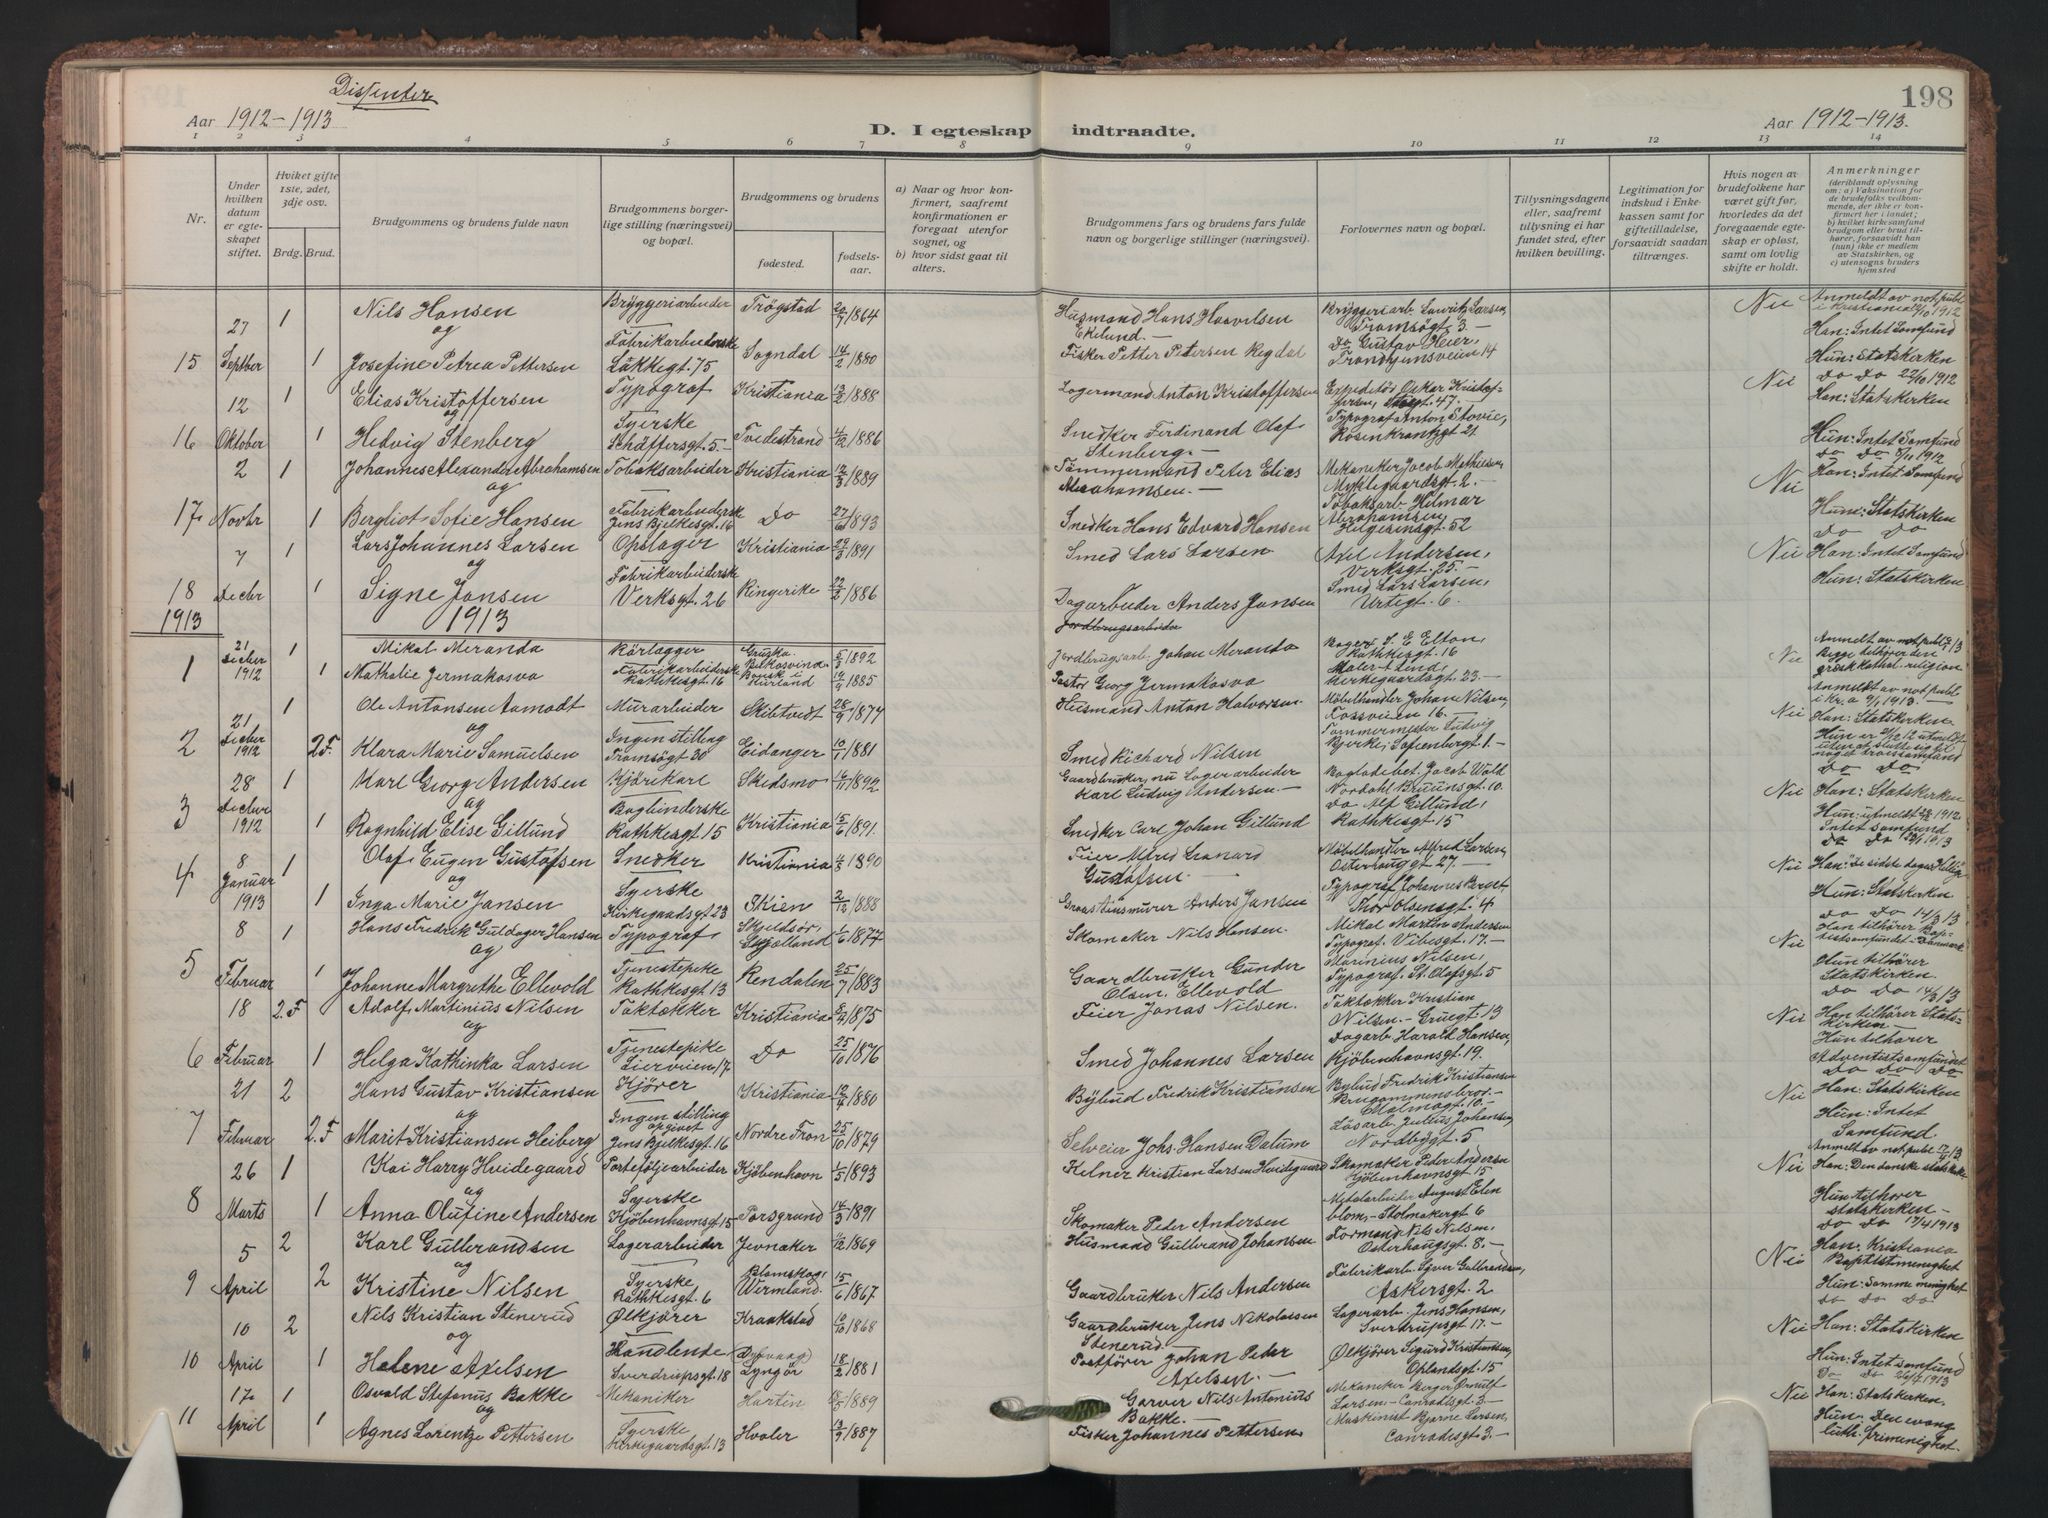 Dissenter
Aar 1912-1913
D. I egteskap indtraadte.
Aar 1912-1913.
198
1 2 3 4 5 6 7 8 9 10 11 12 13 14
Nr.
Under hvilken datum er egteskapet stiftet.
Hviket gifte 1ste, 2det, 3dje osv.
Brdg. Brud.
Brudgommens og brudens fulde navn
Brudgommens borgerlige stilling (næringsvei) og bopæl.
Brudgommens og brudens
fødested.
fødselsaar.
a) Naar og hvor konfirmert, saafremt konfirmationen er foregaat utenfor sognet, og
b) hvor sidst gaat til alters.
Brudgommens fars og brudens fars fulde navn og borgerlige stillinger (næringsvei).
Forlovernes navn og bopæl.
Tillysningsdagene eller, saafremt tillysning ei har fundet sted, efter hvilken bevilling.
Legitimation for indskud i Enkekassen samt for giftetilladelse, forsaavidt saadan tiltrænges.
Hvis nogen av brudefolkene har været gift før, hvorledes da det foregaaende egteskap er opløst, samt om lovlig skifte er holdt.
Anmerkninger (deriblandt oplysning om: a) Vaksination for de brudefolks vedkommende, der ikke er konfirmert her i landet; b) hvilket kirkesamfund brudgom eller brud tilhører, forsaavidt han (hun) ikke er medlem av Statskirken, og c) utensogns bruders hjemsted
15 27 Septber 1 Nils Hansen Bryggeriarbeider Trøgstad 20/7 1864 Husmand Hans Haavelsen Ekelund.- Bryggeriarb. Lauritz Larsen, Tromsøgt. 3.- Nei Anmeldt av not publ i Kristiania 12/10 1912 Han: Intet Samfund
og
1 Josefine Petrea Pettersen Fabrikarbeiderske Lakkegt. 75 Sogndal 14/2 1880 Fisker Petter Petersen Regdal Do Gustav Heier, Trondhjemsveien 14 Hun: Statskirken
16 12 Oktober 1 Elias Kristoffersen Typograf Kristiania 13/2 1888 Lagermand Anton Kristoffersen Expeditør Oskar Kristoffersen, 47. Nei Do Do 22/10 1912 Han: Statskirken
og
1 Hedvig Stenberg Syerske Schäffersgt. 5.- Tvedestrand 4/12 1886 Snedker Ferdinand Olaf Stenberg.- Typograf Anton Stovie, Rosenkrantzgt 21 Hun: Intet Samfund
17 2 Novbr 1 Johannes Alexander Abrahamsen Tobaksarbeider Kristiania 12/3 1889 Tømmermand Peter Elias Abrahamsen.- Mekaniker Jacob Mathisen, Myklegaardsgt. 2.- Nei Do Do 5/11 1912 Han: Intet Samfund
og
1 Bergliot Sofie Hansen Fabrikarbeidersk Jens Bjelkesgt. 16 Do 27/6 1893 Snedker Hans Edvard Hansen Tobaksarb. Hilmar Abrahamsen, Helgesensgt. 52 Hun: Statskirken
18 7 Decbr 1 Lars Johannes Larsen Opslager Kristiania 29/3 1891 Smed Lars Larsen Axel Andersen, Verksgt. 25.- Nei Do Do Han: Intet Samfund
og
1 Signe Jansen Fabrikarbeiderske Verksgt. 26 Ringerike 22/2 1886 Dagarbeider Anders Jansen Smed Lars Larsen, Urtegt. 6. Hun: Statskirken
1913 1913 Jordbrugsarbeider
1 21 Decber 1912 1 Mikal Meranda Rørlægger 5/3 1892 Jordbrugsarb. Johan Meranda Bager S. E Elton, Rathkesgt. 16 Nei Anmeldt av not publ Begge tilhører den græsk kathol. religion
1 Nathalie Jermakosva Fabrikarbeiderske Rathkesgt 16 Kurland 19/9 1885 Pastor Georg Jermakosva Maler A Lind, Kirkegaardsgt. 23.-
2 21 Decber 1912 1 Ole Antonsen Aamodt Murarbeider Skibtvedt 28/9 1874 Husmand Anton Halvorsen Møbelhandler Johan Nilsen, Fossveien 16.- Nei Anmeldt av not publ i Kr.a 9/1 1913.- Han: Statskirken
og
2.F. Klara Marie Samuelsen Ingen stilling Tromsøgt 30 Eidanger 10/1 1881 Smed Richard Nilsen Tømmermester Ludvig Bjerke, Sofienbergt. 1.-
3 28 Decber 1912 1 Karl Georg Andersen Kjørekarl Skedsmo 16/11 1892 Gaardbruker, nu Lagerarbeider Karl Ludvig Andersen.- Bogladebet. Jacob Wold Nordahl Bruunsgt. 10. Nei Do Do Han: Statskirken
og
1 Ragnhild Elise Gillund Bogbinderske Rathkesgt 15 Kristiania 15/6 1891. Snedker Carl Johan Gillund Do Alf Gillund, Rathkesgt. 15 Hun: utmeldt 1912 Intet samfund
4 8 Januar 1913 1 Olaf Eugen Gustafsen Snedker Kristiania 4/8 1890 Feier Alfred Leonard Gustafsen.- Møbelhandler Alfred Larsen, Osterhausgt 27.- Nei Han: "De sidste dages Hellige"
og
1 Inga Marie Jansen Syerske Kirkegaardsgt 23 Skien 2/12 1888 Graastensmurer Anders Jansen Typograf Johannes Berget, Thor Olsensgt. 4 Hun: Statskirken
5 8 Februar 1 Hans Fredrik Guldager Hansen Typograf Skjelsør, Sjælland 1/6 1877 Skomaker Nils Hansen. Mikal Martin Andersen Typograf. Vibesgt. 17.- Nei Do Do 14/3 13 Han tilhører Baptistsamfundet-Danmark
og
1 Johanne Margrethe Ellevold Tjenestepike Rathkesgt 13 Rendalen 25/7 1883 Gaardbruker Gunder Olsen Ellevold Marinius Nilsen, Typograf. St. Olafsgt. 5 Hun tilhører Statskirken.
6 18 Februar 2.F Adolf Martinius Nilsen Taktækker Kristiania 8/4 1875 Feier Jonas Nilsen. Taktækker Kristian Nilsen.- Gruegt. 13 Nei Do Do 14/3 13 Han tilhører Statskirken
og
1 Helga Kathinka Larsen Tjenestepike Lierveien 17 Do 25/10 1876 Smed Johannes Larsen Dagarb. Harald Hansen, Kjøbenhavnsgt. 19. Hun tilhører Adventistsamfundet
7 21 Februar 2 Hans Gustav Kristiansen Kjører Kristiania 12/4 1880 Bybud Fredrik Kristiansen Bybud Fredrik Kristiansen Brugommens bror.- Malmøgt. 10.- Nei Do Do Do Han: Statskirken
og
2.F Marit Kristiansen Heiberg Ingen stilling opgivet Jens Bjelkesgt. 16 Nordre Fron 25/10 1879 Selveier Johs. Hansen Dalum Løsarb. Julius Johansen, Nordbygt. 5 Hun: Intet Samfund
8 26 Marts 1 Kai Harry Hvidegaard Porteføljearbeider Kjøbenhavn 1/5 1893 Kelner Kristian Larsen Hvidegaard Skomaker Peder Andersen Kjøbenhavnsgt. 15 Nei Anmeldt av not publ. 17/4 13 Han: Den danske statskirke
og
1 Anna Olufine Andersen Syerske Kjøbenhavnsgt 15 Porsgrund 14/3 1891 Skomaker Peder Andersen Metalarbeider August Elen blom,- Stolmakergt 6 Hun tilhører statskirken-
9 5 April 2 Karl Gulbrandsen Lagerarbeider Jevnaker 1/12 1869 Husmand Gulbrand Johansen Formand Nils Nilsen, Osterhausgt. 8.- Nei Do Do 17/4 1913 Han: Kristiania Baptistmenighet
og
2 Kristine Nilsen Syerske Rathkesgt. 6 Blomskog, Wermland. 15/6 1867 Gaardbruker Nils Andersen Fabrikarb. Syver Gulbrandsen, Askersgt. 2 Hun: Samme menighet
10 10 April 2 Nils Kristian Stenerud Ølkjører Kraakstad 10/10 1868 Gaardbruker Jens Nikolaisen Stenerud Lagerarb. Jens Hansen, Sverdrupsgt. 17.- Nei Do Do Do Han: Statskirken
og
1 Helene Axelsen Handlende Sverdrupsgt 18 Dypvaag Lyngør 18/2 1881 Postfører Johan Peder Axelsen.- Ølkjører Sigurd Kristiansen, Oplandsgt. 15 Hun: Intet samfund
11 17 April 1 Osvald Stefanus Bakke Mekaniker 1889 Garver Nils Antonius Bakke.- Mekaniker Berger Ørnulf Larsen- Conradsgt. 3.- Nei Do Do 26/4 1913 Han: Statskirken.
og
1 Agnes Lorentze Pettersen Syerske Kirkegaardsgt. 13 Hvaler 13/9 1887 Fisker Johannes Pettersen Maskinist Bjarne Larsen, Conradsgt. 3.- Hun: Den evang luth. frimenighet.